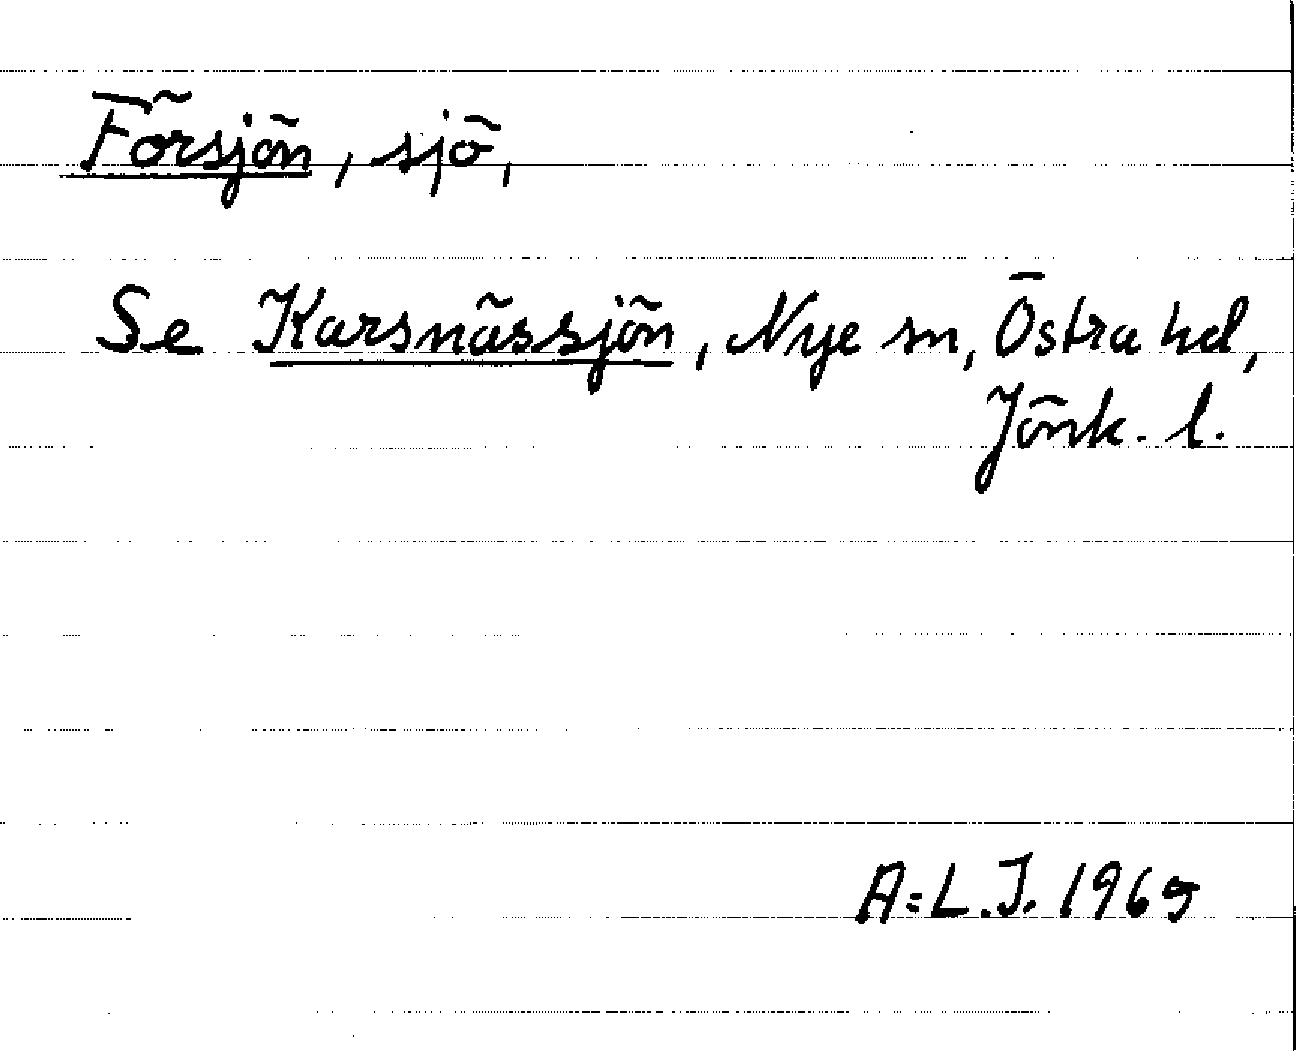 Försjön, sjö,
Se Karsnässjön, Nye sn, Östra hd,
Jönk. l.
A:L.J. 1965